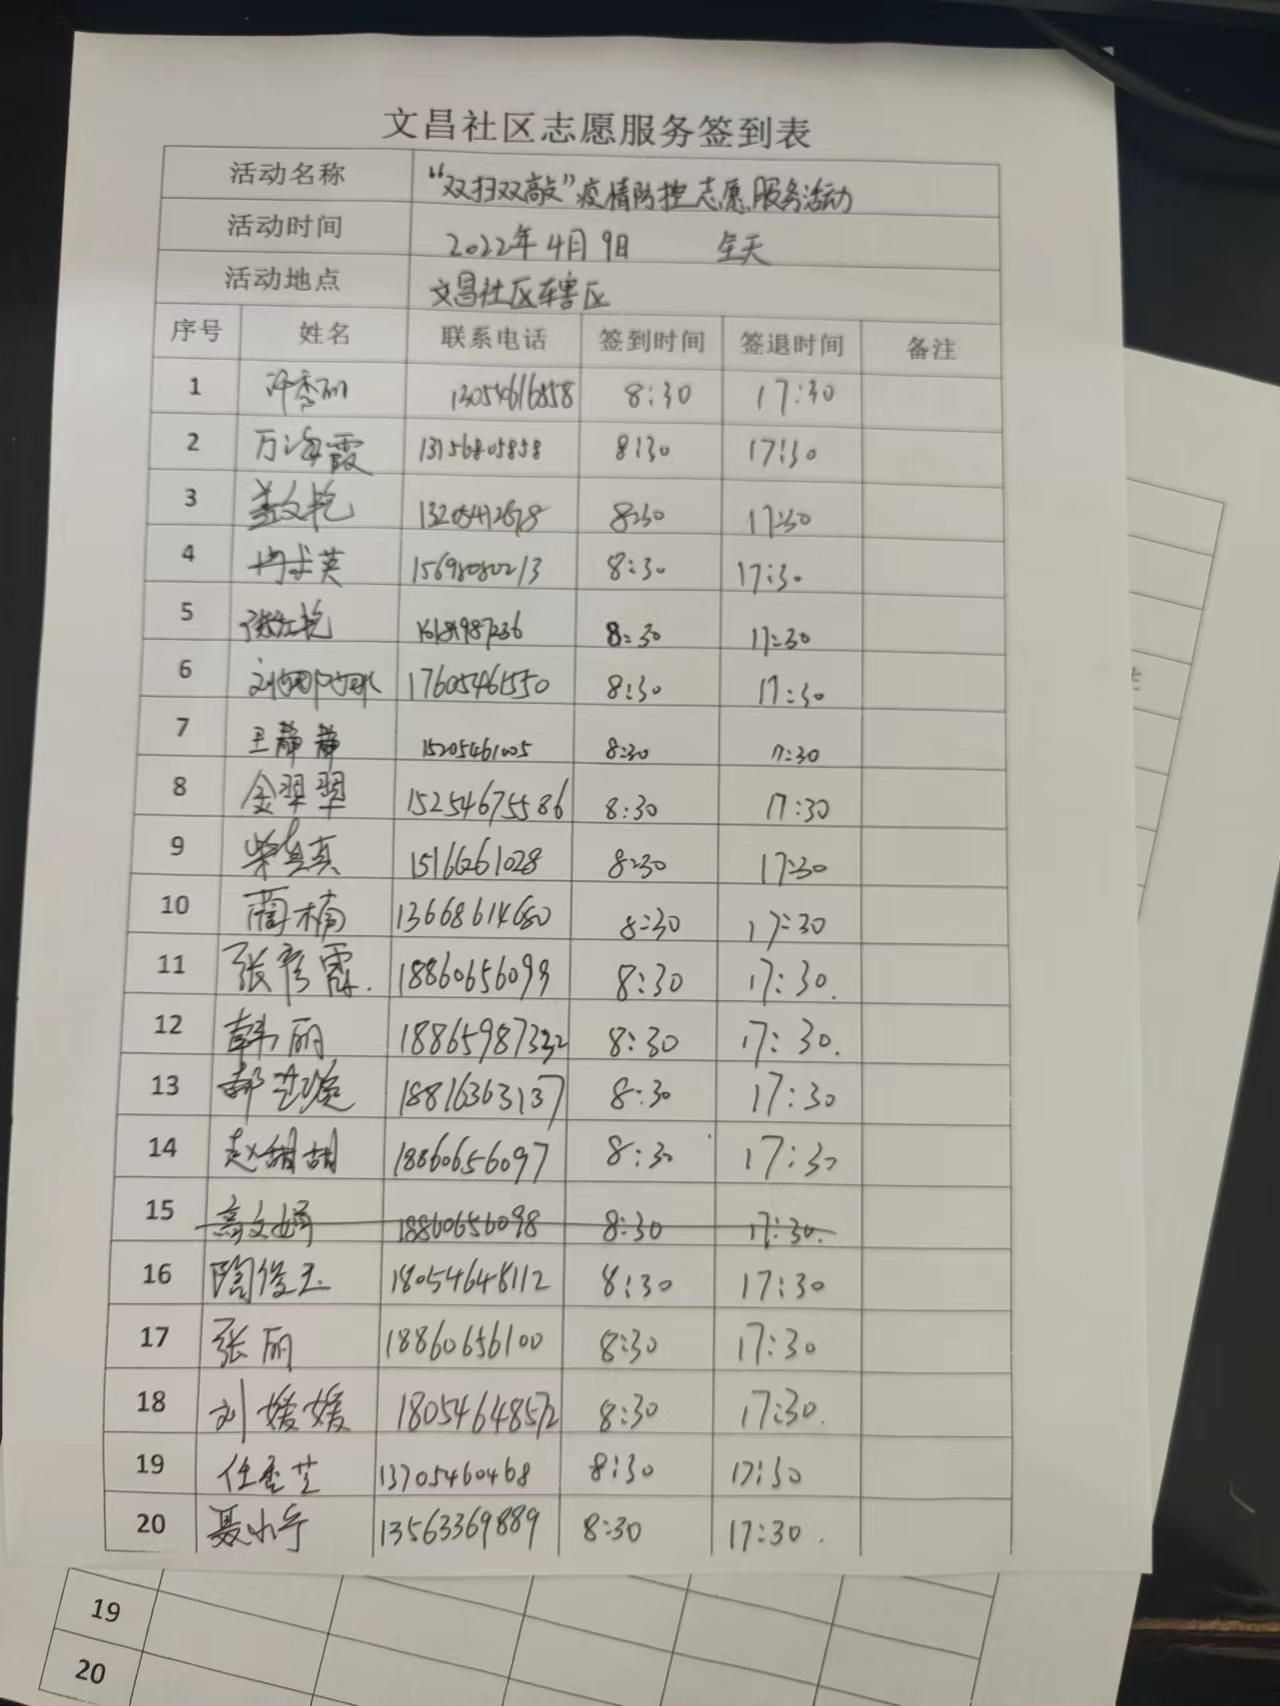 文昌社区志愿服务签到表
活动名称 “双扫双敲”疫情防控志愿服务活动
活动时间 2022年4月9日 全天
活动地点 文昌社区辖区
序号 姓名 联系电话 签到时间 签退时间 备注
1 许秀丽 13054616858 8:30 17:30
2 万海霞 13156805858 8:30 17:30
3 8:30 17:30
4 15698080213 8:30 17:30
5 8:30 17:30
6 17605461550 8:30 17:30
7 王静静 15205461005 8:30 17:30
8 金翠翠 15254675586 8:30 17:30
9 15166261028 8:30 17:30
10 蔺楠 13668614680 8:30 17:30
11 张彦霞. 18860656099 8:30 17:30.
12 韩丽 18865987332 8:30 17:30.
13 18816363137 8:30 17:30
14 赵甜甜 18860656097 8:30 17:30
15 高文娟 18860656098 8:30 17:30.
16 陶俊玉 18054648112 8:30 17:30
17 张丽 18860656100 8:30 17:30
18 刘媛媛 18054648572 8:30 17:30.
19 任玉芝 13705460468 8:30 17:30
20 聂小宁 13563369889 8:30 17:30.
19
20